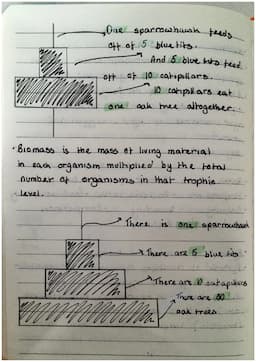 One sparrowhawk feeds
off of 5 bluetits.
And 5 bluetits feed
off of 10 catipillars.
10 catipillars eat
one oak tree altogether.
• Biomass is the mass of living material
in each organism multiplied by the total
number of organisms in that trophic
level.
There is one sparrowhawk
There are 5 blue tits
There are 10 catapillars
There are 50
oak trees.